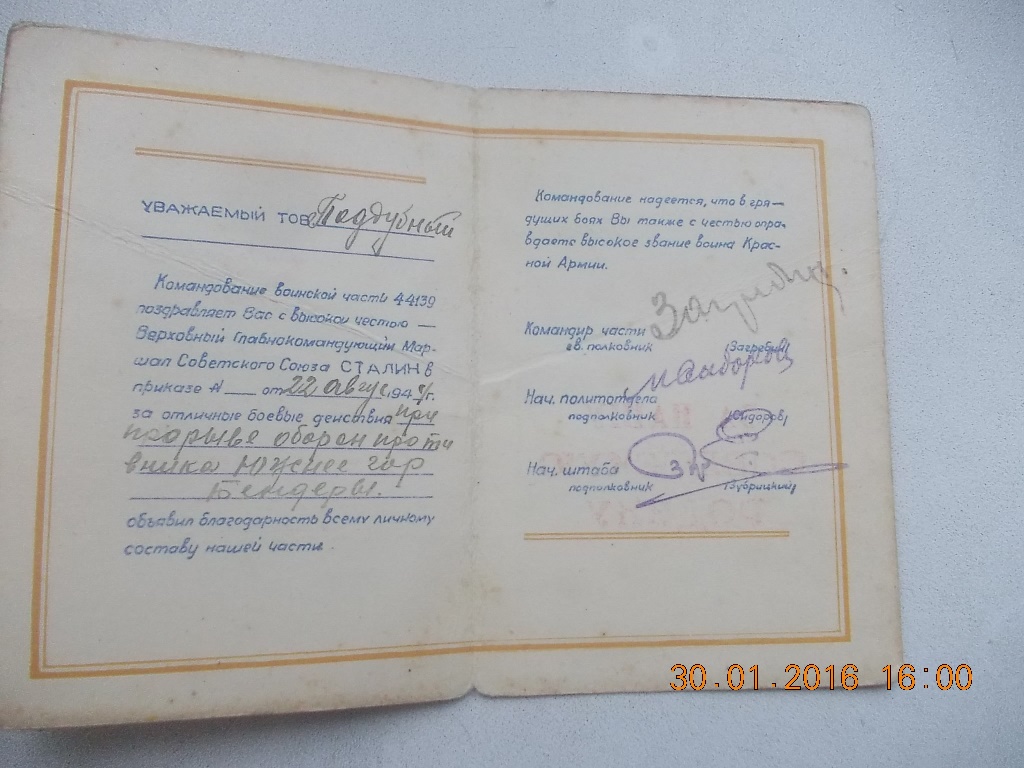 УВАЖАЕМЫЙ ТОВ. Поддубный
Командование воинской части 44139
поздравляет Вас с высокой честью —
Верховный Главнокомандующий Мар-
шал Советского Союза СТАЛИН в
приказе № ___ от 22 августа 1944 г.
за отличные боевые действия при
прорыве оборон проти
вника Южнее гор
Бендеры.
объявил благодарность всему личному
составу нашей части.
Командование надеется, что в гря-
дущих боях Вы также с честью опра-
вдаете высокое звание воина Крас-
ной Армии.
Командир части
гв. полковник (Загребин)
Нач. политотдела МСидоров
подполковник (Сидоров)
Нач. штаба
подполковник (Зубрицкий)
РОДИНУ
30.01.2016 16:00